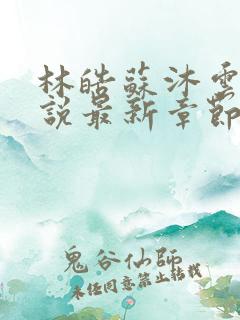 林皓蘇沐雲
說最新章節
鬼谷仙師
未任同意禁止轉載